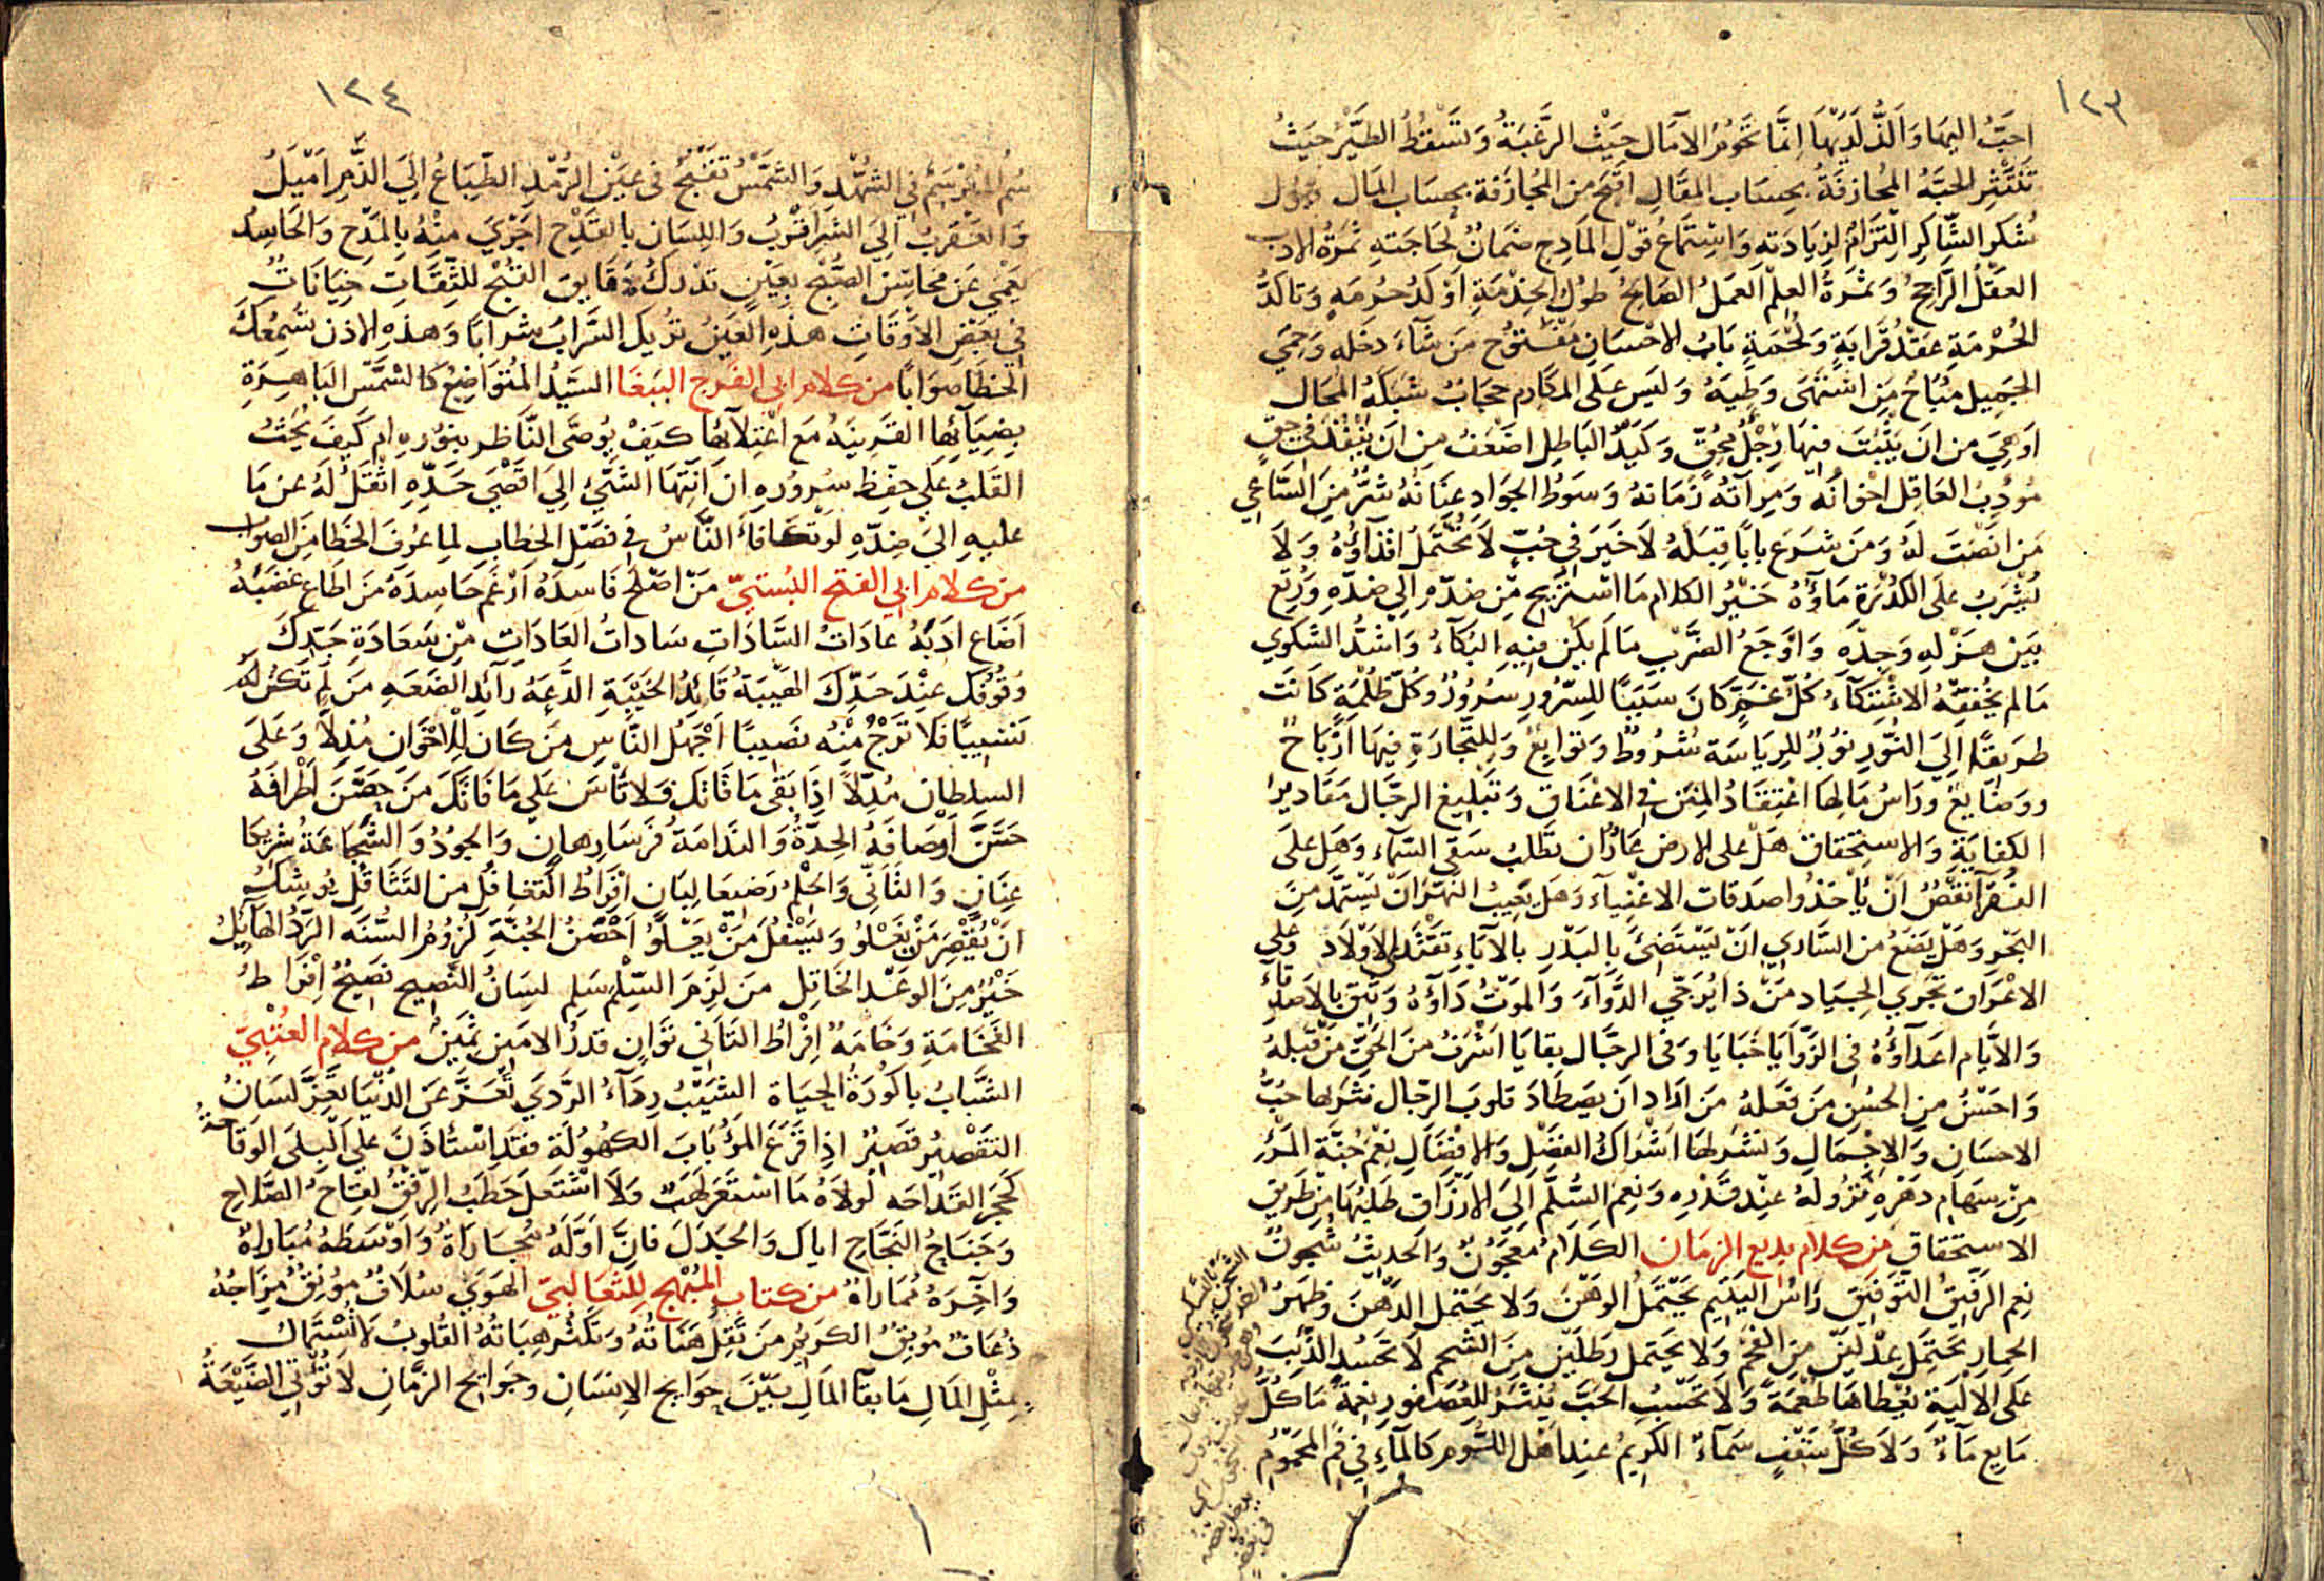 ١٢٣
احبُّ اليها وَالذُّ لَدَيْهَا اِنَّمَا تَحُومُ الآمَال حَيْث الرَّغبَةُ وَتَسْقُطُ الطَّيْرُ حَيَثُ
تَنْتَثِر الحبَّهُ المُجازفَةُ بحِسَاب المقَالِ اقبَح من المُجازَفة بحِسَاب المَال
شكر الشَّاكِرِ الْتِزَامٌ لزيادَته وَاسْتِمَاعُ قَوْلِ المَادِحِ ضمَانٌ لحَاجَتهِ ثَمَرةُ الادب
العَقْلُ الرَّاجحُ وَثمَرَةُ العِلْمِ العَمَلُ الصَّالحُ طُول الخِدْمَةِ اَوْكَدُ حُرمَهٍ وَتاكُّدُ
الحُرْمَةِ عَقْدُ قَرابَةٍ وَلحُمَةٍ بَابُ الاحْسَانِ مَفْتُوْح مَن شَآءَ دخله وَحِمَي
الجَمِيل مُبَاحٌ مَن اشْتَهَى وَطِيَهُ وَليسَ عَلَى المكَارم حِجَابٌ شبَكَةُ المُحَال
اوهِيَ من انَ يَثْبُتَ فيهَا رِجْلُ مُحِقٍّ وَكَيْدُ البَاطِلِ اضْعَفُ من انَ يَنْفُذَ في حقٍّ
مُودّبُ العَاقِل اخوَانُه وَمِرآتهُ زَمَانهُ وَسَوْطُ الجوَادِ عِنَانُهُ شَرٌّ مِنَ السَّاعِي
مَن انْصَتَ لهُ وَمَن شرَع بابًا قِبَلَهُ لَا خَيْرَ في حُبٍّ لَا تُحْتَمَلُ اقذَآؤُهُ وَلَا
يُشْرَبُ علَى الكدْرَةِ مَآؤُهُ خَيْرُ الكلام مَا اسْتُرِيحَ مِن ضدّهِ الي ضِدّهِ وَرُتِعَ
بَيْن هَزْلهِ وَجِدّه وَاوْجَعُ الضَّرْبِ مَا لَم يكن فيهِ البُكَآءُ وَاشَدُّ الشكْوي
مَا لم يُخفِّفهُ الاشْتِكَآءُ كُلُّ غَمٍّ كَانَ سَبَبًا لِلسّرُورِ سُرُورٌ وَكُلّ ظُلْمَةٍ كَانَت
طريقًا الِي النُّور نوُرٌ لِلرِيَاسَة شُرُوطٌ وَتوَابِعُ وَلِلتّجارَةِ فيهَا ارْبَاحٌ
ووضَايِعُ وَرَاسُ مَالِهَا اعْتِقَادُ المِنَنِ في الاعْنَاقِ وَتَبْلِيغ الرجَال مقَادِيرَ
الكفايَةِ وَالاسْتحْقاق هَلْ على الارض عَارٌ ان تطَلبُ سَقي السّمآء وَهَل علَى
الفُقَرآ نَقْصٌ انْ يَأْخذُوا صدَقات الاغْنيآءِ وَهَل يَعِيبُ النّهَر انْ يَسْتَمِدَّ مِن
البَحرِ وَهَلْ يَضَعُ من السَّارِي انْ يَسْتَضئَ بِالبَدْرِ بالآبَاءِ تَقْتَدِي الاوْلادُ وَعلي
الاعْرَاقِ تَجْرِي الجيَاد مَنْ ذا يُرَجّي الدَّوآءَ وَالموَتُ دَآؤُهُ وَيَثِق بالاصدِقَاءِ
وَالايَّام اعدَآؤُهُ في الزَّوَايَا خَبَايَا وَفي الرجَال بقايَا اشْرَفُ منَ الحَقِّ مَن قَبِلهُ
وَاحسَنُ مِن الحُسْنِ مَن فَعَلهُ مَن ارَادَ ان يَصْطَادَ قلوبَ الرجَال نثرَ لها حَبُّ
الاحسَانِ وَالاجْمَالِ وَنَشَرَ لهَا اشْوَاكَ الفَضْلِ وَالافْضَالِ نِعْمَ جُنَّة المَرْءِ
مِنْ سِهَامِ دَهْرِهِ نُزُولُهُ عِنْد قَدْرِه وَنِعمَ السُّلَّم الَي الارْزَاق طَلَبُهَا مِنْ طَرِيق
الاستِحْقاقِ مِن كلام بديع الزمَان الكَلَامُ مَعجُونٌ وَالحَديثُ شُجونٌ
نِعم الرفيقُ التَّوفيق رَاسُ اليَتيم يحْتمَلُ الوَهْنَ وَلا يحَتمل الدُّهْنَ وَظهرُ
الحِمارِ يَحتَمِلُ عِدْلَيْن من الفَحْم وَلا يحتمل رَطلَيْن مِنَ الشحم لا تَحسُدِ الذِّئبَ
علَى الالْيَةِ يُعْطاهَا طُعْمَةً وَلَا تَحْسِبِ الحَبَّ يُنْثَرُ لِلعُصفورِ نِعْمَةً مَا كُلُّ
مَايِعٍ مَآءٌ وَلَا كُلُّ سَقْفٍ سَمآءٌ الكَريمُ عند اهْل اللُّوم كَالمآءِ في فَم المَحمُومِ
١٢٤
سُمُّ المُبَرْسَمِ في الشهْدِ وَالشّمْسُ تقْبُحُ في عَيْنِ الرُّمْدِ الطّبَاعُ الِيَ الذَّمِّ امْيَلُ
وَالعَقربُ الِيَ الشرِّ اقْرَبُ وَاللِسَان بالقَدْحِ اجْرَي مِنْهُ بِالمَدْحِ وَالحَاسِدُ
يَعْمَي عَن مَحَاسِنِ الصُّبْحِ بعَيْنٍ تدْرَك دقَايِقَ القُبْحِ لِلثِّقَاتِ خِيَانَاتٌ
في بَعْضِ الاوْقَاتِ هذِهِ العَيْنُ تُرِيكَ السَّرَابَ شَرَابًا وَهذِهِ الاذن تُسْمِعُكَ
الخَطَا صوَابًا من كلام ابي الفرج الببغا السّيّدُ المُتوَاضِعُ كَالشمَسِ البَاهِرَةِ
بِضِيَآئِهَا القَرِيبَهُ مَعَ اعْتِلآئِهَا كيَفْ يُوصَّى النَّاظِر بنوُرِهِ ام كَيفَ يُحَثُّ
القَلبُ عَلَي حِفظِ سُرُورِهِ ان انْتِهَا الشيْءِ الِيَ اقْصَي حَدِّهِ انْتقَلَ لَهُ عن مَا
عليهِ الي ضِدّهِ لَوتكَافَأ النَّاسُ في فَصْلِ الخِطابِ لِما عُرِفَ الخَطَا مِنَ الصوَاب
من كلام ابي الفتح البُستيّ مَنْ اصْلَحَ فاسِدَهُ ارْغَم حَاسِدَهُ مَن اطَاع غضَبَهُ
اَضَاع ادَبَهُ عادَاتُ السَّادَاتِ سَاداتُ العَادَات مِن سَعَادَةِ جَدِّكَ
وُقُوفُك عِنْدَ حَدِّكَ الهَيْبَةُ قَائِدُ الخَيْبَةِ الدَّعَةُ رآئِد الضَعَهِ مَن لَم تَكن لَهُ
نَسيِبًا فَلا تَرْجُ مِنْهُ نَصِيبًا اجْهَلُ النَّاسِ مَن كَان لِلاخوَانِ مُذِلًّا وَعَلَى
السلطان مُدِلًّا اذا بقَى مَا قَاتَكَ فَلا تأسَ عَلي مَا فَاتَكَ مَن حَصَّنَ اطرَافَهُ
حَسَّنَ اوْصَافَهُ الحِدَّةُ وَالنَدَامَةُ فَرَسَا رِهانٍ وَالجوُدُ وَالشّجَاعَةُ شَرِيكا
عِنَانٍ وَالتَّأَنّي وَالحِلْمُ رَضِيعَا لِبَان افْرَاطُ التغافُلِ من التَثَاقُل يُوشِكُ
انْ يُقْصِرَ مَنْ يَعْلُو وَيَسْفُل مَنْ يَعْلُو احْصَنُ الجُنّةِ لزُومُ السُّنَةِ الرّدُّ الهَائِلُ
خَيْرٌ مِنَ الوَعْد الحَائِل مَن لَزِمَ السّلْم سَلِم لِسَانُ النَّصيحِ فَصِيحٌ افْرَاطُ
الفَخامَةِ وَخَامَةٌ افْرَاطُ التَأنّي تَوَانٍ قدرُ الامين ثَمينٌ من كلام العُتْبِيّ
الشَّبَابُ باكُورَةُ الحيَاة الشَيْبُ رِدَآءُ الرَّدَي تُعَزُّ عن الدّنيَا بعِزّ لسَانُ
التقَصِيْر قَصِيْرٌ اذا قَرَعَ المَرْؤُ بَابَ الكُهُولَة فقَد اسْتأذَنَ عَلَي البِلَى الوَقَاحَةُ
كَحَجَر القَدَّاحَه لوْلاَهُ مَا اسْتَعَر لَهَبٌ وَلَا اشْتَعَل حَطَبٌ الرِّفْقُ لِقَاحُ الصَّلَاحِ
وَجَنَاحُ النَجَاحِ اياك وَالجدَلَ فانَّ اوَّلَهُ مُجارَاةٌ وَاوْسَطَهُ مُبَارَاةٌ
وَآخِرَهُ مُمَارَاةٌ من كتاب المُبْهِج للِثعَالبيّ الهَوَي سُلَافٌ مُونِقٌ مِزَاجُهُ
ذُعَافٌ مُوبِقٌ الكَرِيمُ مَن تَقِلّ هَنَاتُهُ وَتكثُر هِبَاتُهُ القُلوبُ لا تُسْتَمَالُ
بِمِثْلِ المَالِ مَا بقآ المَالِ بَيْنَ حوَايج الانسَانِ وَجوَايح الزمَانِ لا تُؤْتي الضَيْعَةُ